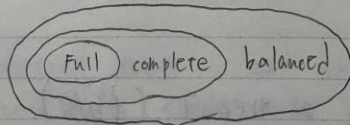 Full complete balanced